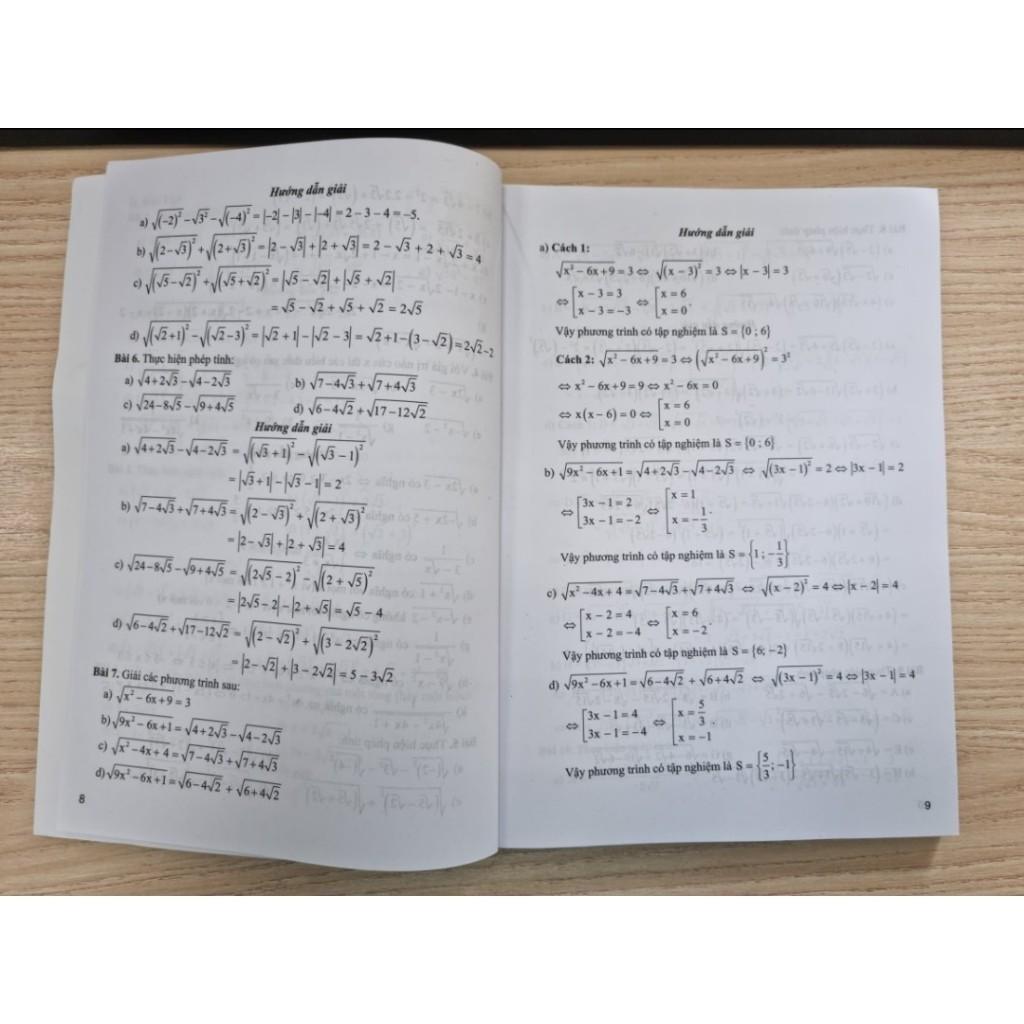 Hướng dẫn giải
a) √(-2)² − √3² − √(-4)² = |-2| − |3| − |-4| = 2 − 3 − 4 = −5.
b) √(2-√3)² + √(2+√3)² = |2 − √3| + |2 + √3| = 2 − √3 + 2 + √3 = 4
c) √(√5 − √2)² + √(√5 + √2)² = |√5 − √2| + |√5 + √2|
= √5 − √2 + √5 + √2 = 2√5
d) √(√2+1)² − √(√2−3)² = |√2 + 1| − |√2 − 3| = √2 + 1 − (3 − √2) = 2√2 − 2
Bài 6. Thực hiện phép tính:
a) √(4+2√3) − √(4−2√3) b) √(7−4√3) + √(7+4√3)
c) √(24−8√5) − √(9+4√5) d) √(6−4√2) + √(17−12√2)
Hướng dẫn giải
a) √(4+2√3) − √(4−2√3) = √(√3+1)² − √(√3−1)²
= |√3+1| − |√3−1| = 2
b) √(7−4√3) + √(7+4√3) = √(2−√3)² + √(2+√3)²
= |2−√3| + |2+√3| = 4
c) √(24−8√5) − √(9+4√5) = √(2√5−2)² − √(2+√5)²
= |2√5−2| − |2+√5| = √5 − 4
d) √(6−4√2) + √(17−12√2) = √(2−√2)² + √(3−2√2)²
= |2−√2| + |3−2√2| = 5 − 3√2
Bài 7. Giải các phương trình sau:
a) √(x²−6x+9) = 3
b) √(9x²−6x+1) = √(4+2√3) − √(4−2√3)
c) √(x²−4x+4) = √(7−4√3) + √(7+4√3)
d) √(9x²−6x+1) = √(6−4√2) + √(6+4√2)
8
Hướng dẫn giải
a) Cách 1:
√(x²−6x+9) = 3 ⇔ √(x−3)² = 3 ⇔ |x−3| = 3
⇔ [x − 3 = 3 ⇔ [x = 6
x − 3 = −3 x = 0.
Vậy phương trình có tập nghiệm là S = {0 ; 6}
Cách 2: √(x²−6x+9) = 3 ⇔ (√(x²−6x+9))² = 3²
⇔ x² − 6x + 9 = 9 ⇔ x² − 6x = 0
⇔ x(x−6) = 0 ⇔ [x = 6
x = 0
Vậy phương trình có tập nghiệm là S = {0 ; 6}
b) √(9x²−6x+1) = √(4+2√3) − √(4−2√3) ⇔ √(3x−1)² = 2 ⇔ |3x−1| = 2
⇔ [3x − 1 = 2 ⇔ [x = 1
3x − 1 = −2 x = −1/3.
Vậy phương trình có tập nghiệm là S = {1 ; −1/3}
c) √(x²−4x+4) = √(7−4√3) + √(7+4√3) ⇔ √(x−2)² = 4 ⇔ |x−2| = 4
⇔ [x − 2 = 4 ⇔ [x = 6
x − 2 = −4 x = −2.
Vậy phương trình có tập nghiệm là S = {6; −2}
d) √(9x²−6x+1) = √(6−4√2) + √(6+4√2) ⇔ √(3x−1)² = 4 ⇔ |3x−1| = 4
⇔ [3x − 1 = 4 ⇔ [x = 5/3
3x − 1 = −4 x = −1.
Vậy phương trình có tập nghiệm là S = {5/3; −1}
9